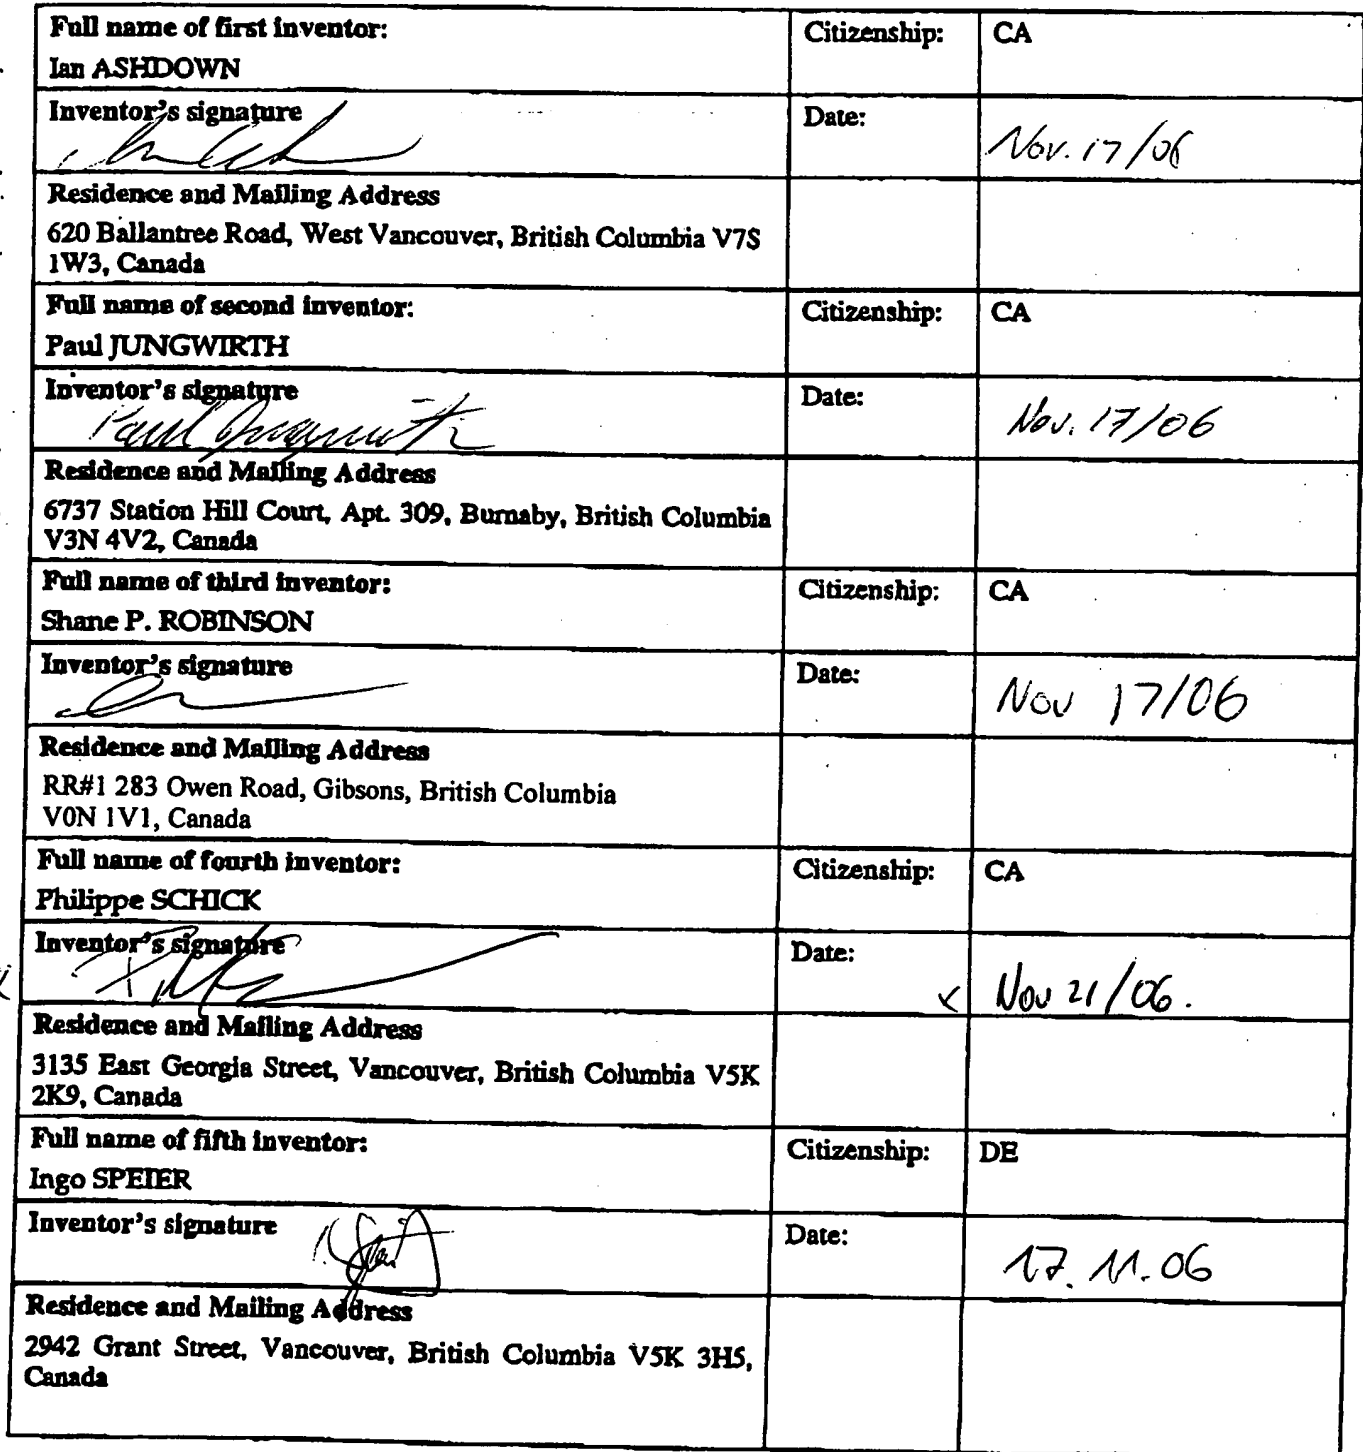 Full name of first inventor:
Citizenship: CA
Ian ASHDOWN
Inventor's signature
Date: Nov. 17/06
Residence and Mailing Address
620 Ballantree Road, West Vancouver, British Columbia V7S
1W3, Canada
Full name of second inventor:
Citizenship: CA
Paul JUNGWIRTH
Inventor's signature
Date: Nov. 17/06
Paul Jungwirth
Residence and Mailing Address
6737 Station Hill Court, Apt. 309, Burnaby, British Columbia
V3N 4V2, Canada
Full name of third inventor:
Citizenship: CA
Shane P. ROBINSON
Inventor's signature
Date: Nov 17/06
Residence and Mailing Address
RR#1 283 Owen Road, Gibsons, British Columbia
V0N 1V1, Canada
Full name of fourth inventor:
Citizenship: CA
Philippe SCHICK
Inventor's signature
Date: x Nov 21/06.
Residence and Mailing Address
3135 East Georgia Street, Vancouver, British Columbia V5K
2K9, Canada
Full name of fifth inventor:
Citizenship: DE
Ingo SPEIER
Inventor's signature
Date: 17.11.06
Residence and Mailing Address
2942 Grant Street, Vancouver, British Columbia V5K 3H5,
Canada